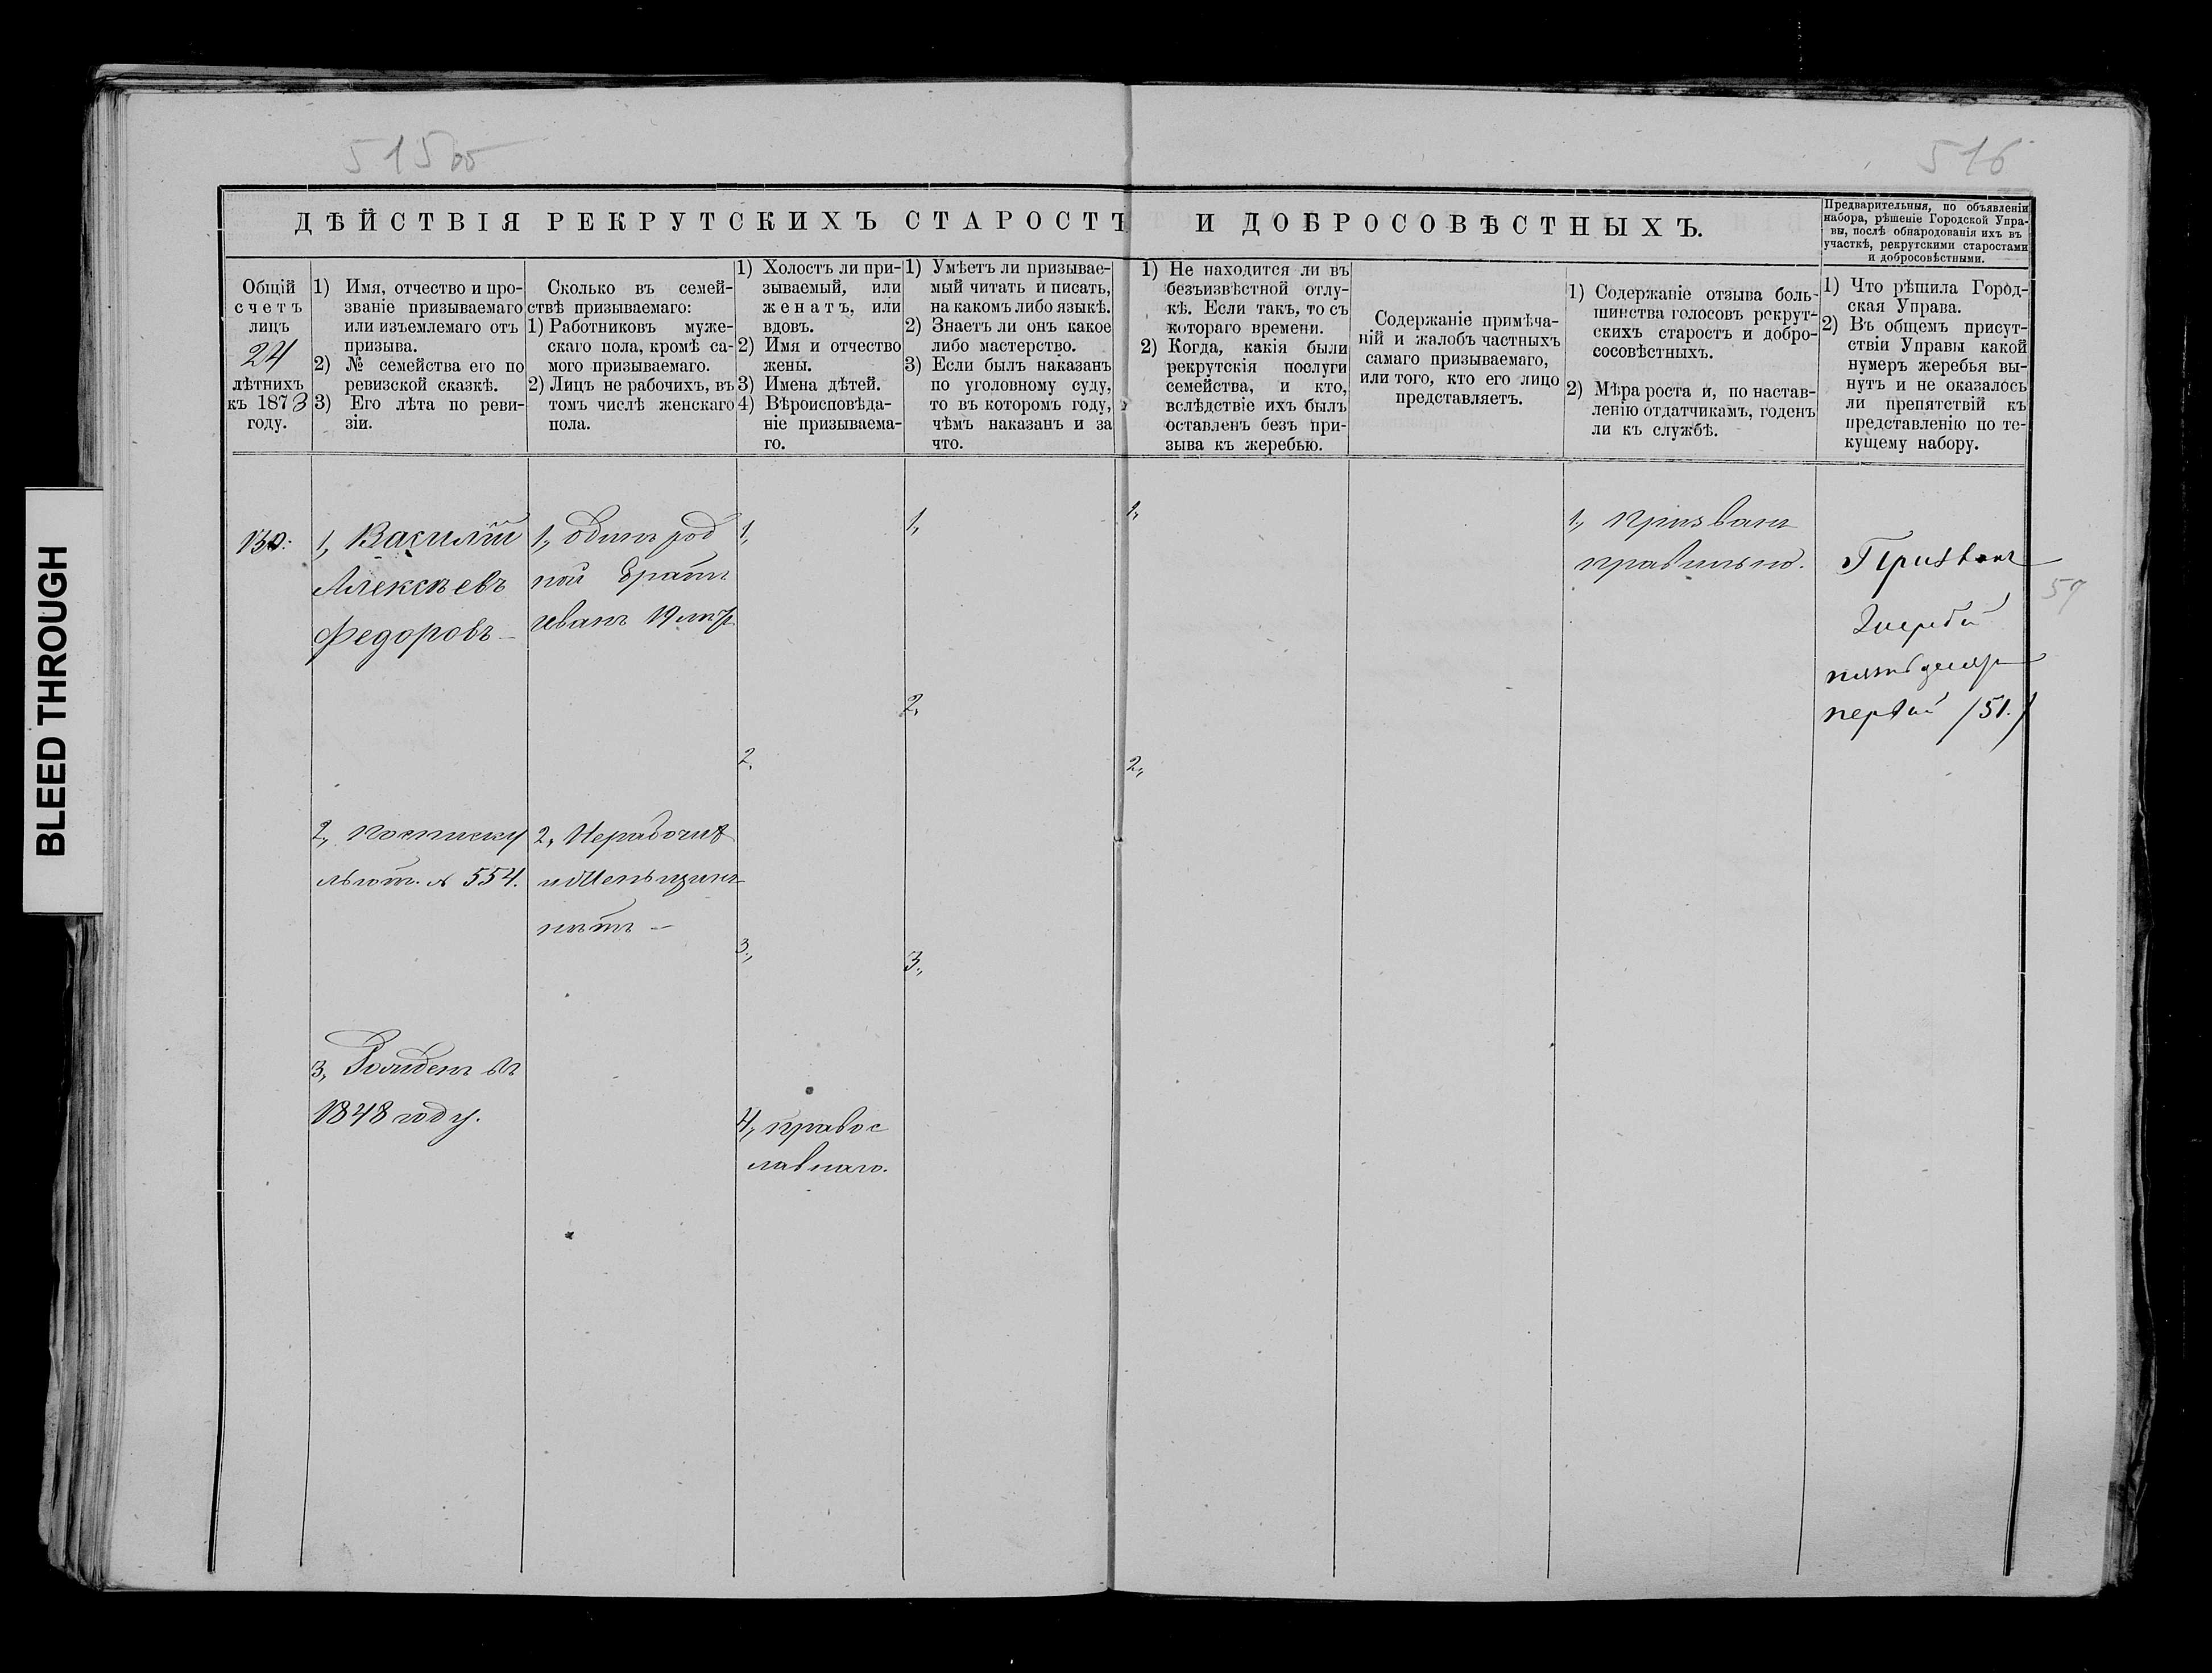 515 об
516
ДѢЙСТВІЯ РЕКРУТСКИХЪ СТАРОСТЪ И ДОБРОСОВѢСТНЫХЪ.
Предварительныя, по объявленіи
набора, рѣшеніе Городской Упра-
вы, послѣ обнародованія ихъ въ
участкѣ, рекрутскими старостами
и добросовѣстными.
Общій
счетъ
лицъ
24
лѣтнихъ
къ 1873
году.
1) Имя, отчество и про-
званіе призываемаго
или изъемлемаго отъ
призыва.
2) № семейства его по
ревизской сказкѣ.
3) Его лѣта по реви-
зіи.
Сколько въ семей-
ствѣ призываемаго:
1) Работниковъ муже-
скаго пола, кромѣ са-
мого призываемаго.
2) Лицъ не рабочихъ, въ
томъ числѣ женскаго
пола.
1) Холостъ ли при-
зываемый, или
женатъ, или
вдовъ.
2) Имя и отчество
жены.
3) Имена дѣтей.
4) Вѣроисповѣда-
ніе призываема-
го.
1) Умѣетъ ли призывае-
мый читать и писать,
на какомъ либо языкѣ.
2) Знаетъ ли онъ какое
либо мастерство.
3) Если былъ наказанъ
по уголовному суду,
то въ которомъ году,
чѣмъ наказанъ и за
что.
1) Не находится ли въ
безъизвѣстной отлу-
кѣ. Если такъ, то съ
котораго времени.
2) Когда, какія были
рекрутскія послуги
семейства, и кто,
вслѣдствіе ихъ былъ
оставленъ безъ при-
зыва къ жеребью.
Содержаніе примѣча-
ній и жалобъ частныхъ
самаго призываемаго,
или того, кто его лицо
представляетъ.
1) Содержаніе отзыва боль-
шинства голосовъ рекрут-
скихъ старостъ и добро-
совѣстныхъ.
2) Мѣра роста и, по настав-
ленію отдатчикамъ, годенъ
ли къ службѣ.
1) Что рѣшила Город-
ская Управа.
2) Въ общемъ присут-
ствіи Управы какой
нумеръ жеребья вы-
нутъ и не оказалось
ли препятствій къ
представленію по те-
кущему набору.
130.
1, Василій
Алексѣевъ
Федоровъ
2, по списку
льгот. № 554.
3, Рожденъ въ
1848 году.
1, одинъ род
ной братъ
Иванъ 19 лѣтъ
2, Нерабочихъ
и женщинъ
нѣтъ —
1,
2.
3,
4, правос
лавнаго.
1,
2,
3,
1,
2,
1, Призванъ
правильно.
Призванъ
Жребій
пятьдесятъ
первый /51./
BLEED THROUGH